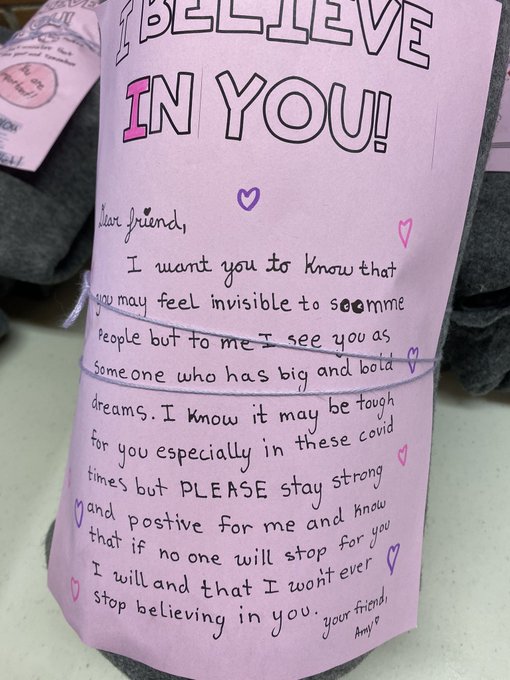 I BELIEVE
IN YOU!
Dear friend,
I want you to know that
you may feel invisible to soomme
People but to me I see you as
someone who has big and bold
dreams. I know it may be tough
for you especially in these covid
times but PLEASE stay strong
and postive for me and know
that if no one will stop for you
I will and that I won't ever
stop believing in you.
your friend,
Amy